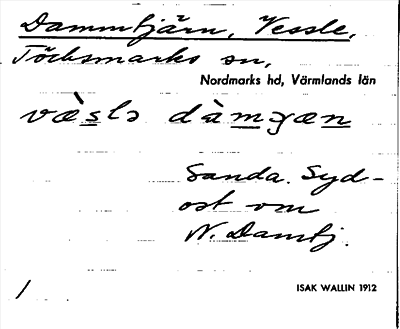 Dammtjärn, Vessle,
Töcksmarks sn,
Nordmarks hd, Värmlands län
væ̀slə dàmɟæn
Sanda. Syd-
ost om
N. Damtj.
ISAK WALLIN 1912